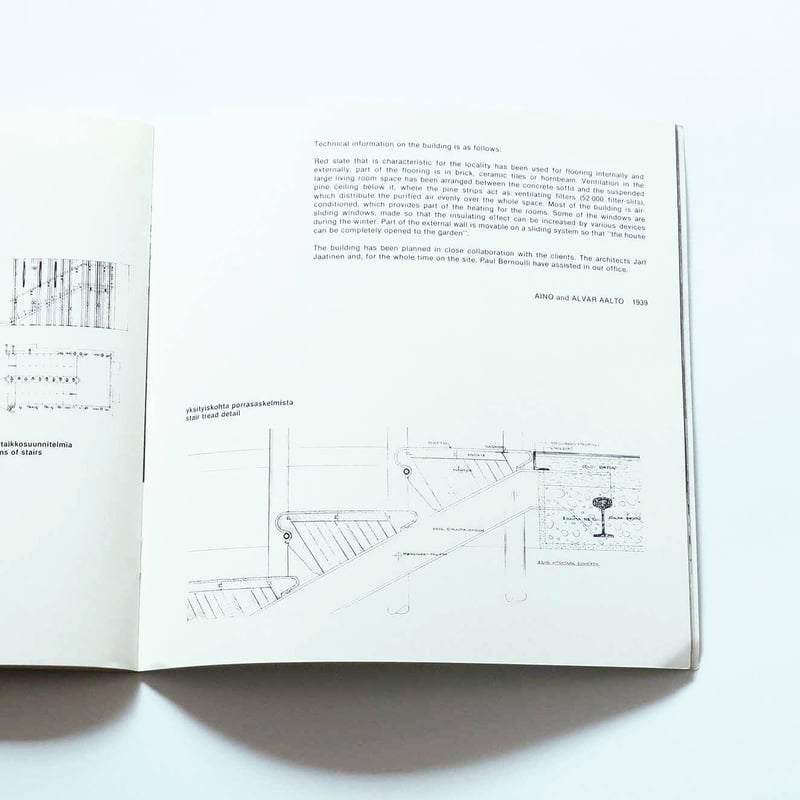 taikkosuunnitelmia
ns of stairs
Technical information on the building is as follows:
Red slate that is characteristic for the locality has been used for flooring internally and
externally, part of the flooring is in brick, ceramic tiles or hornbeam. Ventilation in the
large living room space has been arranged between the concrete soffit and the suspended
pine ceiling below it, where the pine strips act as ventilating filters (52 000 filter-slits),
which distribute the purified air evenly over the whole space. Most of the building is air-
conditioned, which provides part of the heating for the rooms. Some of the windows are
sliding windows, made so that the insulating effect can be increased by various devices
during the winter. Part of the external wall is movable on a sliding system so that "the house
can be completely opened to the garden".
The building has been planned in close collaboration with the clients. The architects Jarl
Jaatinen and, for the whole time on the site, Paul Bernoulli have assisted in our office.
AINO and ALVAR AALTO 1939
yksityiskohta porrasaskelmista
stair tread detail